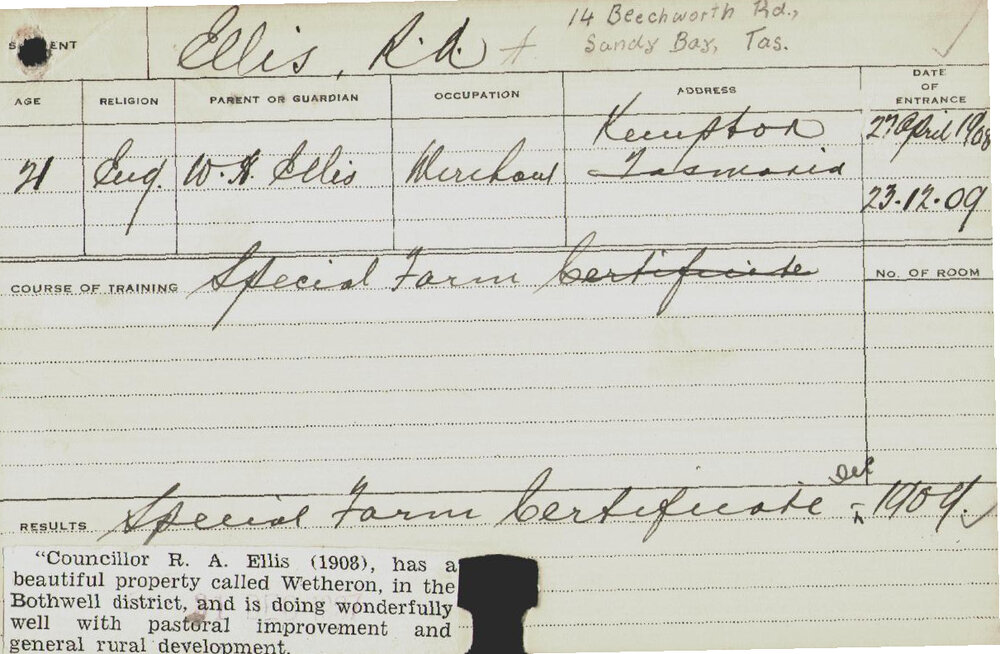 14 Beechworth Rd.,
Sandy Bay, Tas.
STUDENT Ellis, R.A.
AGE RELIGION PARENT OR GUARDIAN OCCUPATION ADDRESS DATE OF ENTRANCE
21 Eng. W. H. Ellis Merchant Kempton Tasmania 27 April 1908
23.12.09
COURSE OF TRAINING Special Farm Certificate No. OF ROOM
RESULTS Special Farm Certificate Dec 1909.
"Councillor R. A. Ellis (1908), has a
beautiful property called Wetheron, in the
Bothwell district, and is doing wonderfully
well with pastoral improvement and
general rural development.